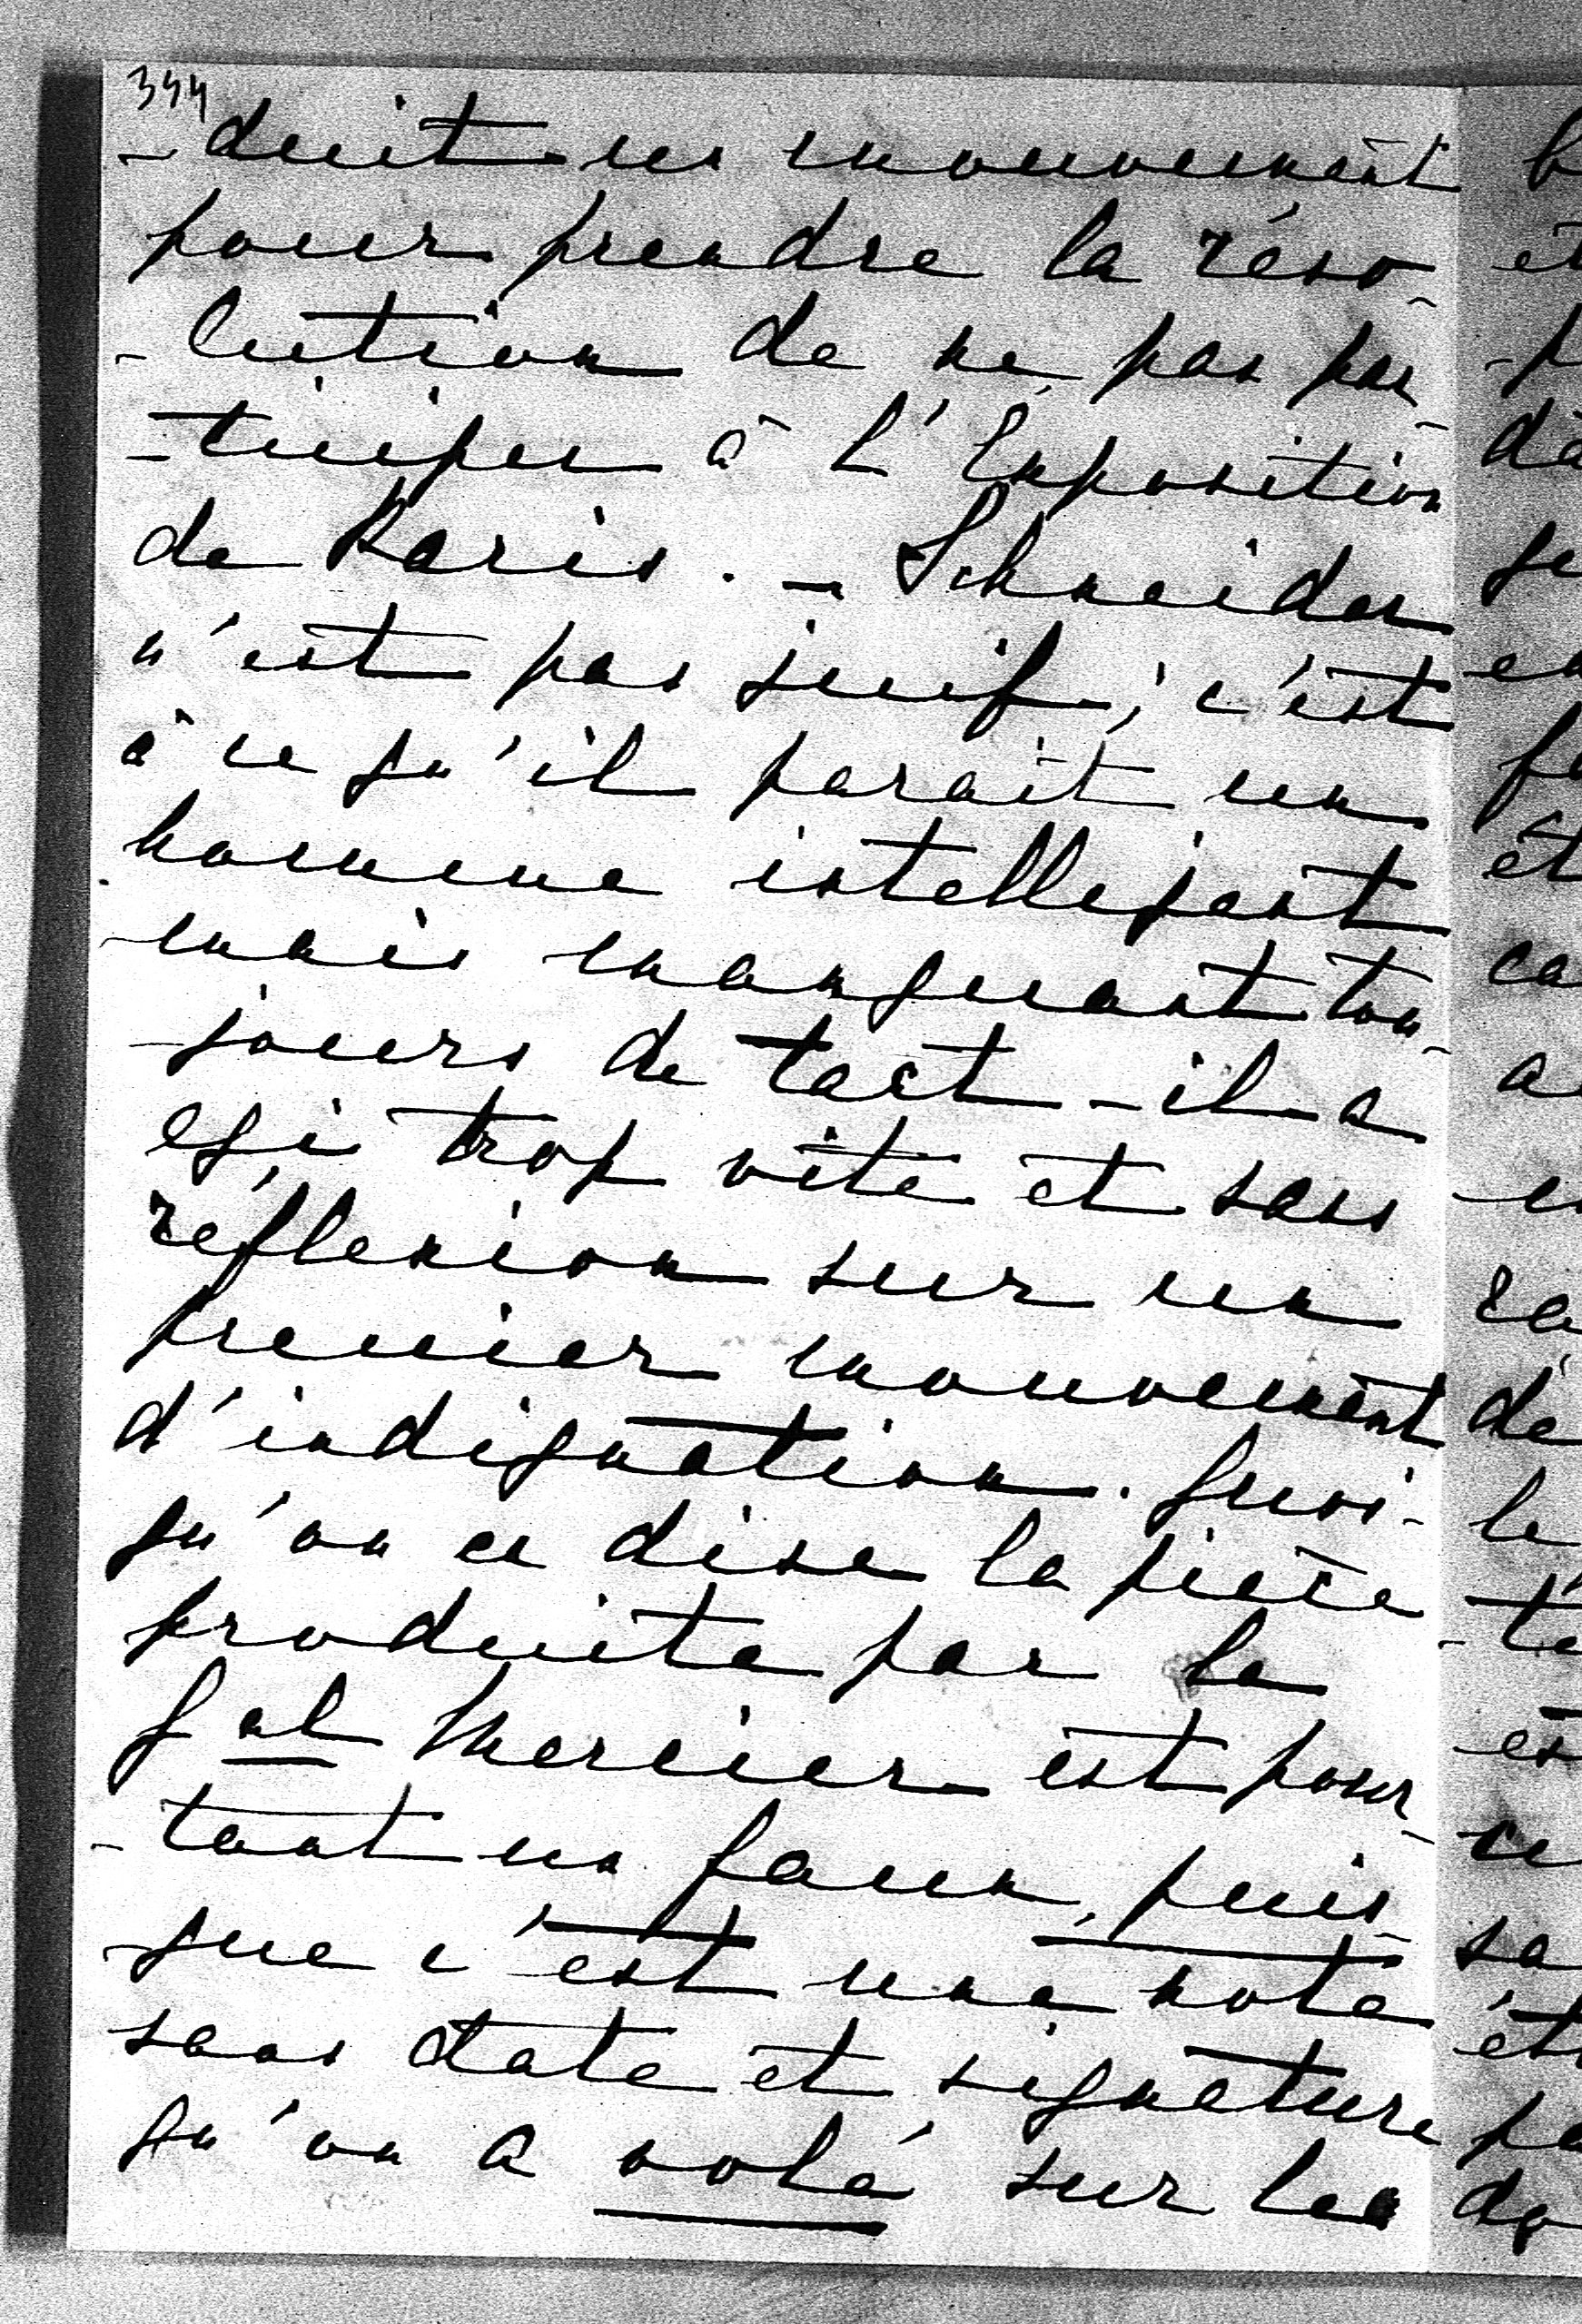 344
-duit un mouvement
pour prendre la réso-
-lution de ne pas par-
-ticiper à l'Exposition
de Paris. - Schneider
n'est pas juif; c'est
à ce qu'il parait un
homme intelligent
mais manquant tou-
-jours de tact - il a
agi trop vite et sans
réflexion sur un
premier mouvement
d'indignation. Quoi-
qu'on en dise la pièce
produite par le
gal Mercier est pour-
-tant un faux, puis-
-que c'est une note
sans date et signature
qu'on a volé sur les